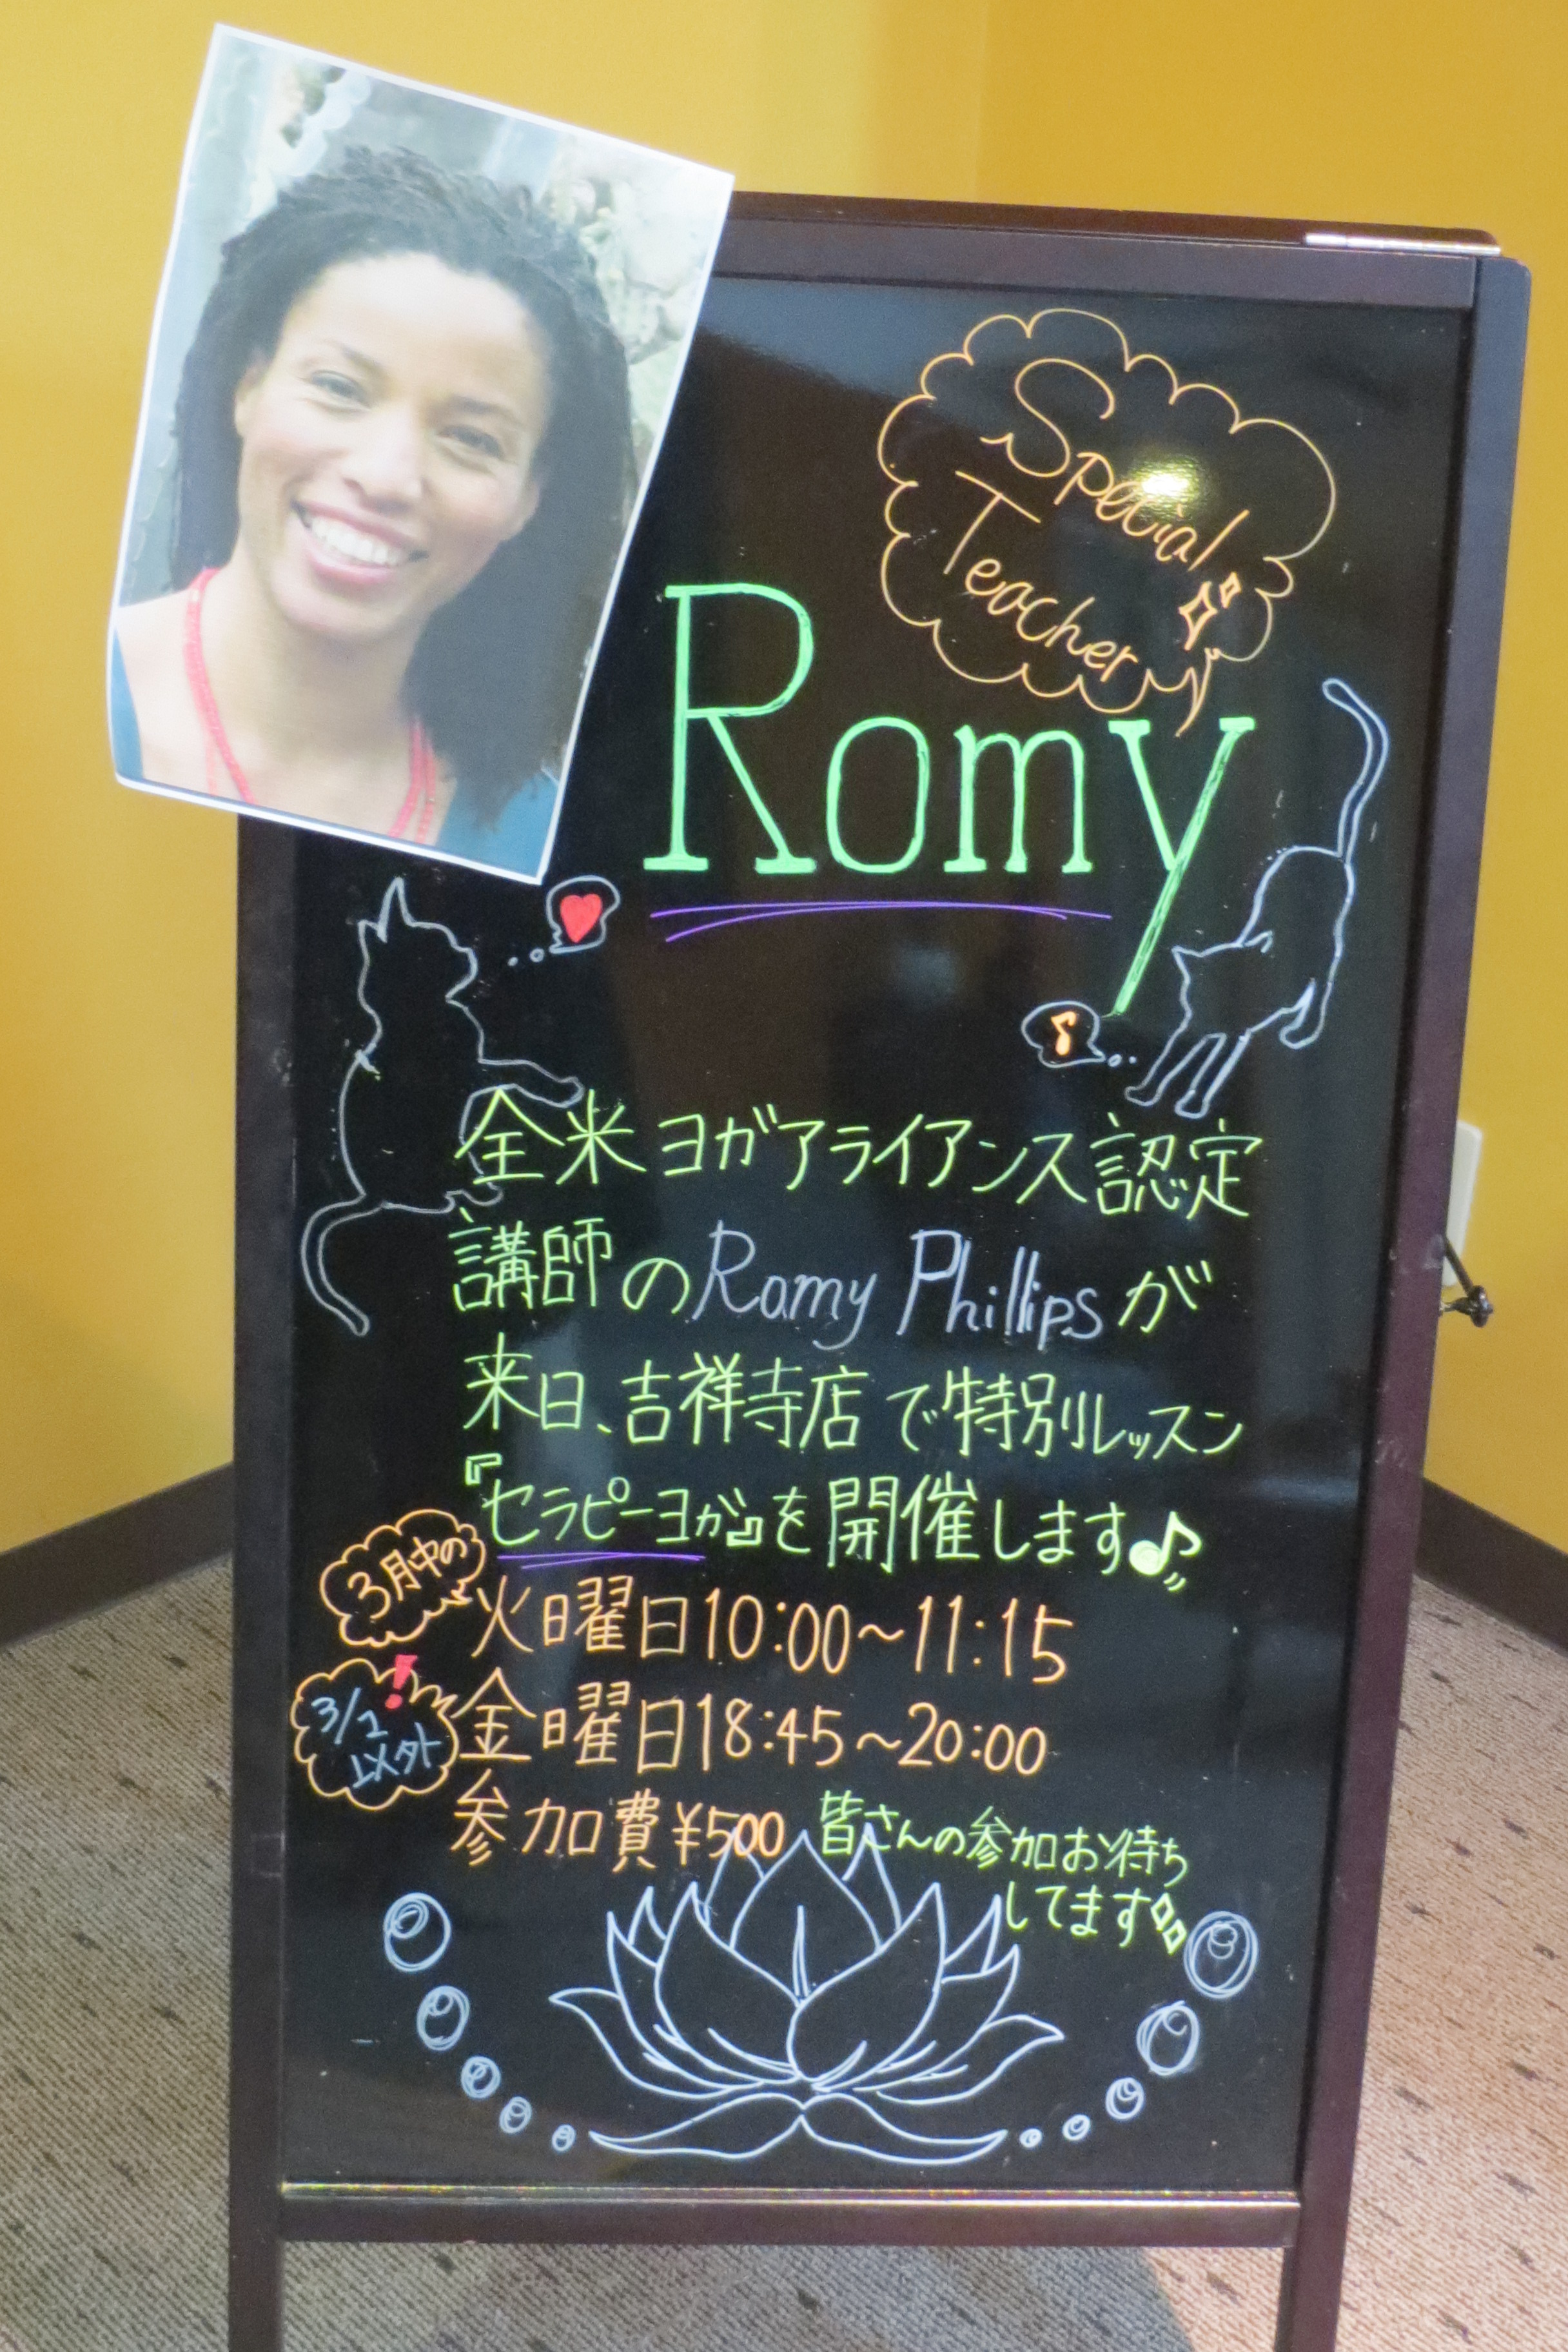 Special
Teacher
Romy
全米ヨガアライアンス認定
講師のRomy Phillipsが
来日、吉祥寺店で特別レッスン
『セラピーヨガ』を開催します♪
3月中の
火曜日10:00~11:15
3/1
以外!
金曜日18:45~20:00
参加費¥500
皆さんの参加お待ち
してます